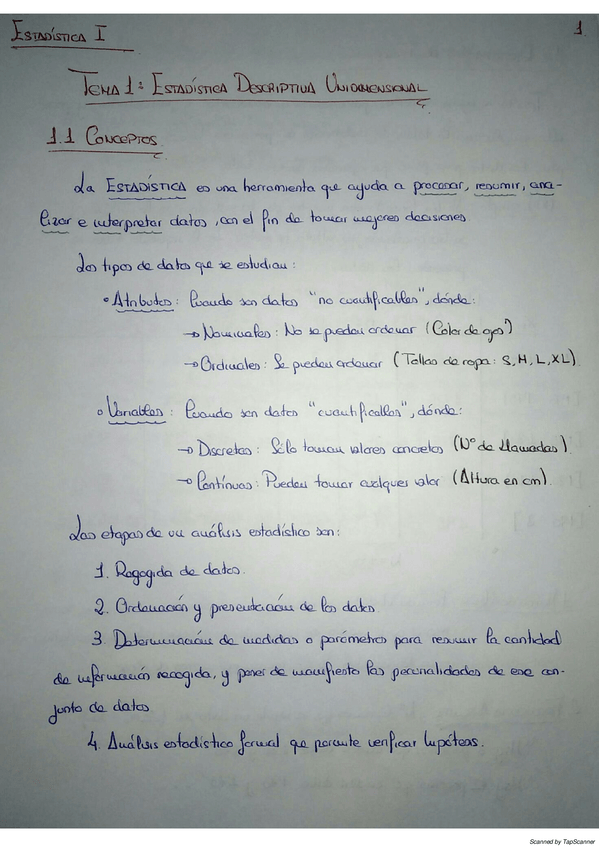 ESTADÍSTICA I
1
TEMA 1: ESTADÍSTICA DESCRIPTIVA UNIDIMENSIONAL
1.1 CONCEPTOS
La ESTADÍSTICA es una herramienta que ayuda a procesar, resumir, ana-
lizar e interpretar datos, con el fin de tomar mejores decisiones.
Los tipos de datos que se estudian:
• Atributos: Cuando son datos "no cuantificables", dónde:
→ Nominales: No se pueden ordenar (Color de ojos)
→ Ordinales: Se pueden ordenar (Tallas de ropa: S, M, L, XL)
• Variables: Cuando son datos "cuantificables", dónde:
→ Discretas: Sólo toman valores concretos (Nº de llamadas)
→ Contínuas: Pueden tomar cualquier valor (Altura en cm).
Las etapas de un análisis estadístico son:
1. Recogida de datos.
2. Ordenación y presentación de los datos
3. Determinación de medidas o parámetros para resumir la cantidad
de información recogida, y poner de manifiesto las peculialidades de ese con-
junto de datos
4. Análisis estadístico formal que permite verificar hipótesis.
Scanned by TapScanner